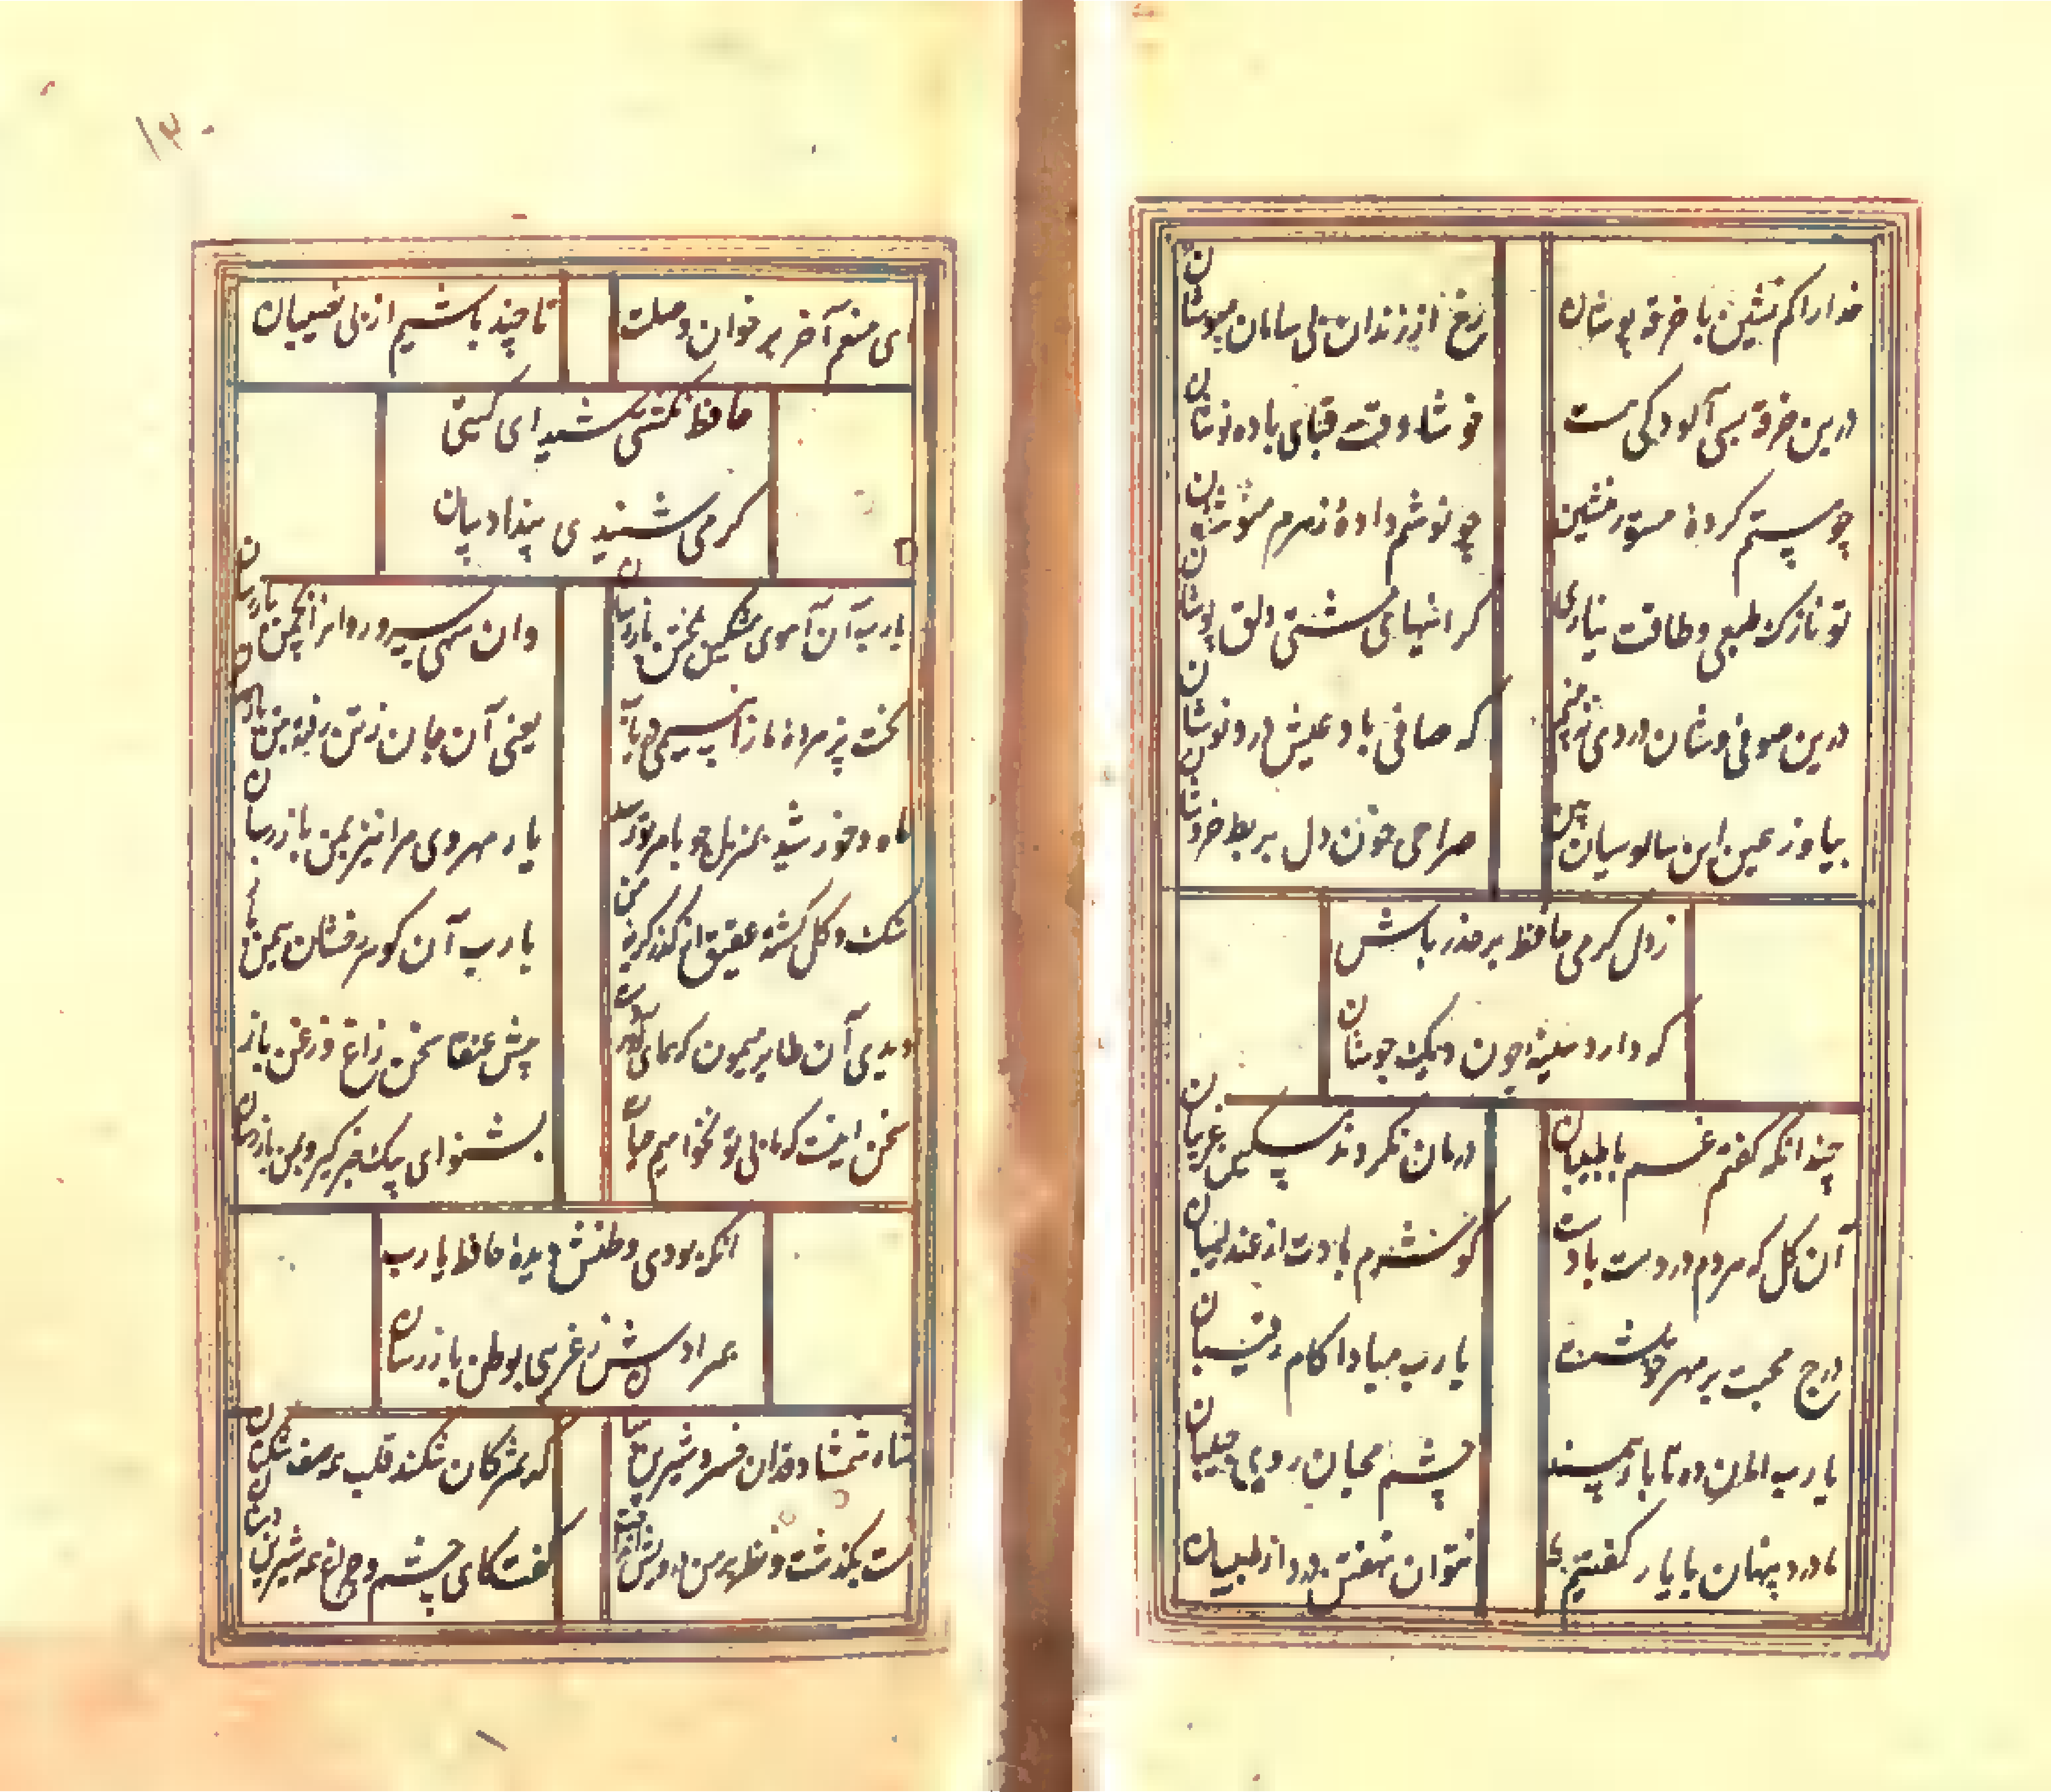 خدارا کم نشین با خرقه پوشان
رخ از رندان بی سامان مپوشان
درین خرقه بسی آلودگی هست
خوشا وقت قبای باده نوشان
چو مستم کرده مستور منشین
چو نوشم داده زهرم منوشان
تو نازک طبعی و طاقت نیاری
گرانیهای مشتی دلق پوشان
درین صوفی وشان دردی ندیدم
که صافی باد عیش دردنوشان
بیا وز غبن این سالوسیان بین
صراحی خون دل بربط خروشان
ز دل گرمی حافظ بر حذر باش
که دارد سینه چون دیک جوشان
چندانکه گفتم غم با طبیبان
درمان نکردند مسکین غریبان
آن گل که هر دم در دست بادست
گو شرم بادت از عندلیبان
درج محبت بر مهر خود نیست
یارب مبادا کام رقیبان
یارب امان ده تا باز بیند
چشم محبان روی حبیبان
ما درد پنهان با یار گفتیم
نتوان نهفتن درد از طبیبان
۱۳۰
ای منعم آخر بر خوان وصلت
تا چند باشیم از بی نصیبان
حافظ نگشتی شیدای گیتی
گر می شنیدی پند ادیبان
یارب آن آهوی مشکین بختن باز رسان
وان سهی سرو روانرا بچمن باز رسان
بخت پژمرده ما را بنسیمی دریاب
یعنی آن جان ز تن رفته بتن باز رسان
ماه و خورشید بمنزل چو بامر تو رسند
یار مهروی مرا نیز بمن باز رسان
یارب آن کوهر رخشان بیمن باز
دیدی آن طایر میمون
پیش عنقا سخن زاغ و زغن باز
سخن اینست که ما بی تو نخواهیم حیات
بشنو ای پیک خبر گیر و بمن باز رسان
آنکه بودی وطنش دیده حافظ یارب
بمرادش ز غریبی بوطن باز رسان
شاه شمشاد قدان خسرو شیرین
که بمژکان شکند قلب همه صف شکنان
مست بگذشت و نظر بر من درویش انداخت
گفت کای چشم و چراغ همه شیرین